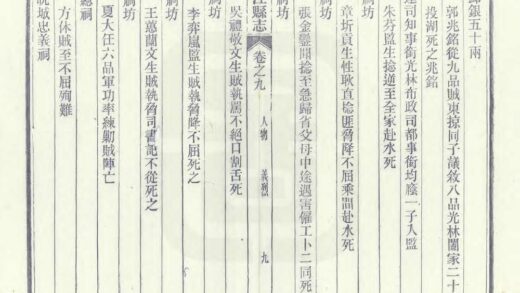 銀五十兩
郭兆銘從九品賊東掠同子議敘八品光林闔家二十
投湖死之兆銘
運司知事銜光林布政司都事銜均廕一子入監
朱芬監生捻逼至全家赴水死
祠坊
章圻貢生性耿直捻匪脅降不屈乘間赴水死
祠坊
張金鑾聞捻至急歸省父母中途遇害僱工卜二同死
江縣志 卷之九 人物 義烈 九
吳禮敬文生賊執罵不絕口割舌死
祠坊
李葬嵐監生賊執脅降不屈死之
祠坊
王蕙蘭文生賊執脅司書記不從死之
祠坊
夏大任六品軍功率練勦賊陣亡
總祠
方休賊至不屈殉難
皖城忠義祠